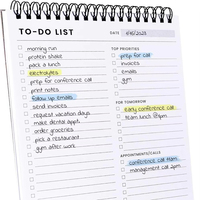 TO-DO LIST
DATE
morning run
protein shake
pack a lunch
electrolytes
prep for conference call
print notes
follow up emails
send invoices
request vacation days
make dental appt.
order groceries
pick a restaurant
gym after work
TOP PRIORITIES
prep for call
invoices
emails
gym
FOR TOMORROW
early conference call
team lunch @1pm
APPOINTMENTS/CALLS
conference call 11am
management call 2pm